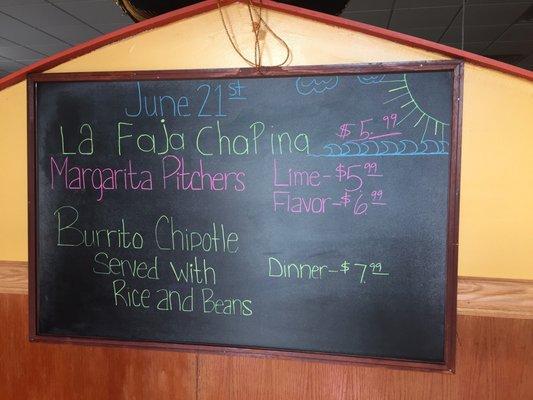 June 21st
La Faja Chapina $5.99
Margarita Pitchers Lime-$5.99
Flavor-$6.99
Burrito Chipotle
Served with Dinner-$7.99
Rice and Beans